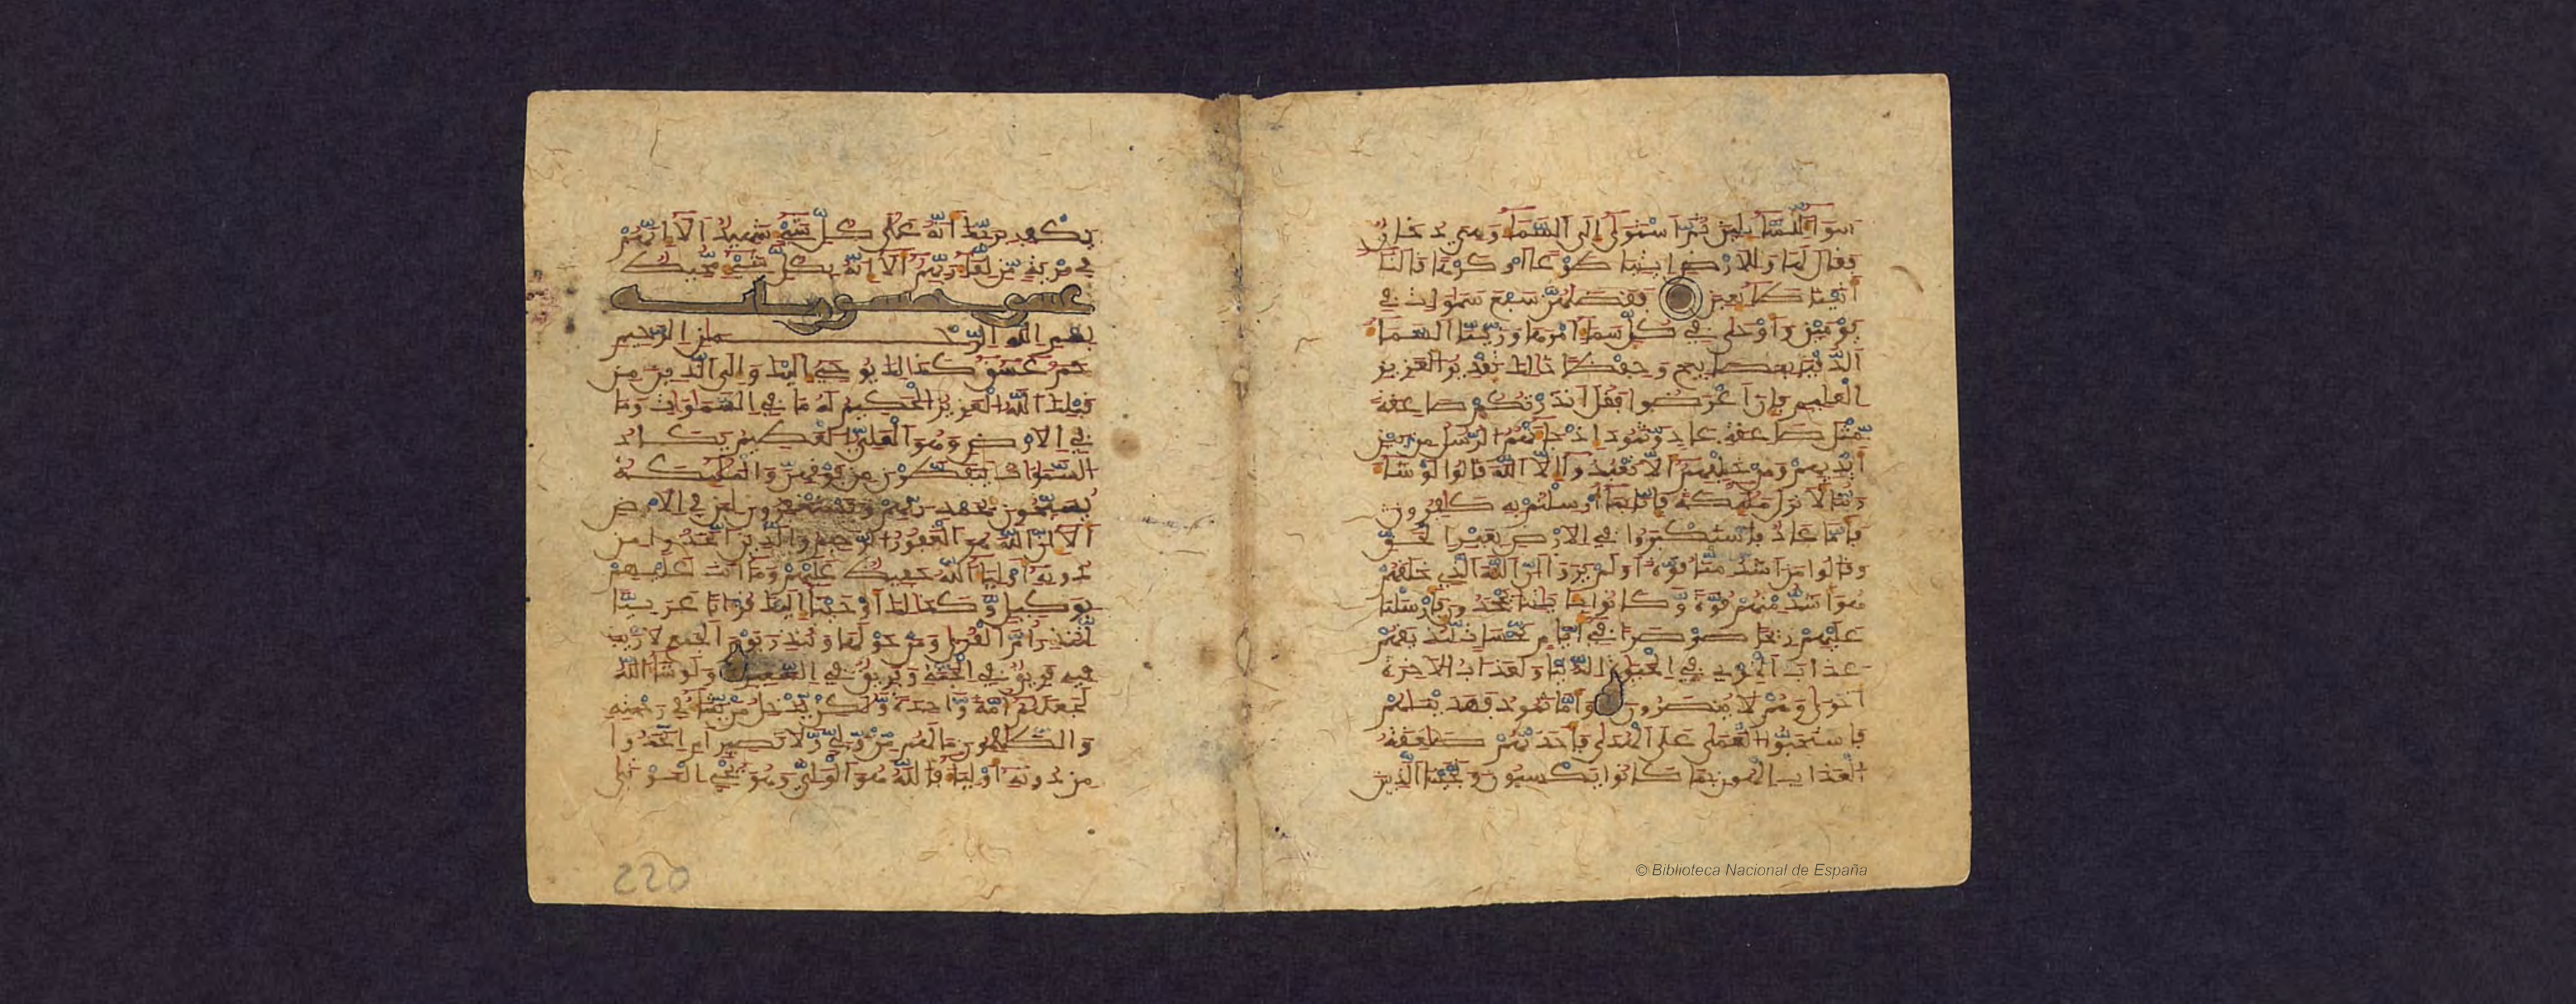 سوا للسايلين ثم استوى الى السما وهي دخان
فقال لها وللارض ايتيا طوعا او كرها قالتا
اتينا طايعين فقضيهن سبع سموات في
يومين واوحى في كل سما امرها وزينا السما
الدنيا بمصابيح وحفظا ذلك تقدير العزيز
العليم فان اعرضوا فقل انذرتكم صاعقة
مثل صاعقة عاد وثمود اذ جاتهم الرسل من بين
ايديهم ومن خلفهم الا تعبدوا الا الله قالوا لو شا
ربنا لانزل مليكة فانا بما ارسلتم به كافرون
فاما عاد فاستكبروا في الارض بغير الحق
وقالوا من اشد منا قوة اولم يروا ان الله الذي خلقهم
هو اشد منهم قوة وكانوا باياتنا يجحدون فارسلنا
عليهم ريحا صرصرا في ايام نحسات لنذيقهم
عذاب الخزي في الحيوة الدنيا ولعذاب الاخرة
اخزى وهم لا ينصرون واما ثمود فهديناهم
فاستحبوا العمى على الهدى فاخذتهم صاعقة
العذاب الهون بما كانوا يكسبون ونجينا الذين
يكف بربك انه على كل شي شهيد الا انهم
في مرية من لقا ربهم الا انه بكل شي محيط
بسم الله الرحمان الرحيم
حم عسق كذالك يوحي اليك والى الذين من
قبلك الله العزيز الحكيم له ما في السموات وما
في الارض وهو العلي العظيم يكاد
السموات يتفطرن من فوقهن والمليكة
يسبحون بحمد ربهم ويستغفرون لمن في الارض
الا ان الله هو الغفور الرحيم والذين اتخذوا من
دونه اوليا الله حفيظ عليهم وما انت عليهم
بوكيل وكذالك اوحينا اليك قرانا عربيا
لتنذر ام القرى ومن حولها وتنذر يوم الجمع لا ريب
فيه فريق في الجنة وفريق في السعير ولو شا الله
لجعلهم امة واحدة ولكن يدخل من يشا في رحمته
والظالمون ما لهم من ولي ولا نصير ام اتخذوا
من دونه اوليا فالله هو الولي وهو يحي الموتى
220
© Biblioteca Nacional de España